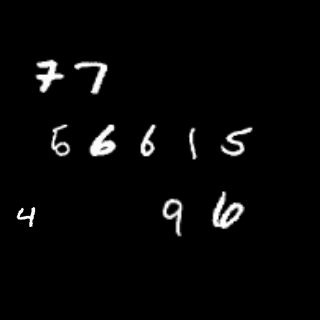 77
66615
4 96